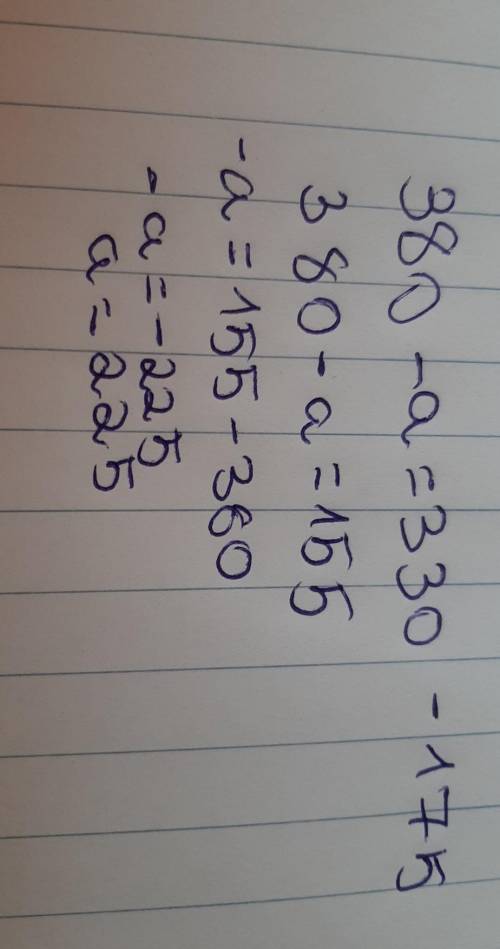 380 - a = 330 - 175
380 - a = 155
- a = 155 - 380
- a = - 225
a = 225